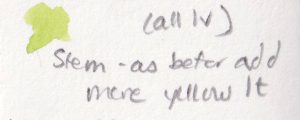 (all IV)
Stem - as befor add
more yellow It